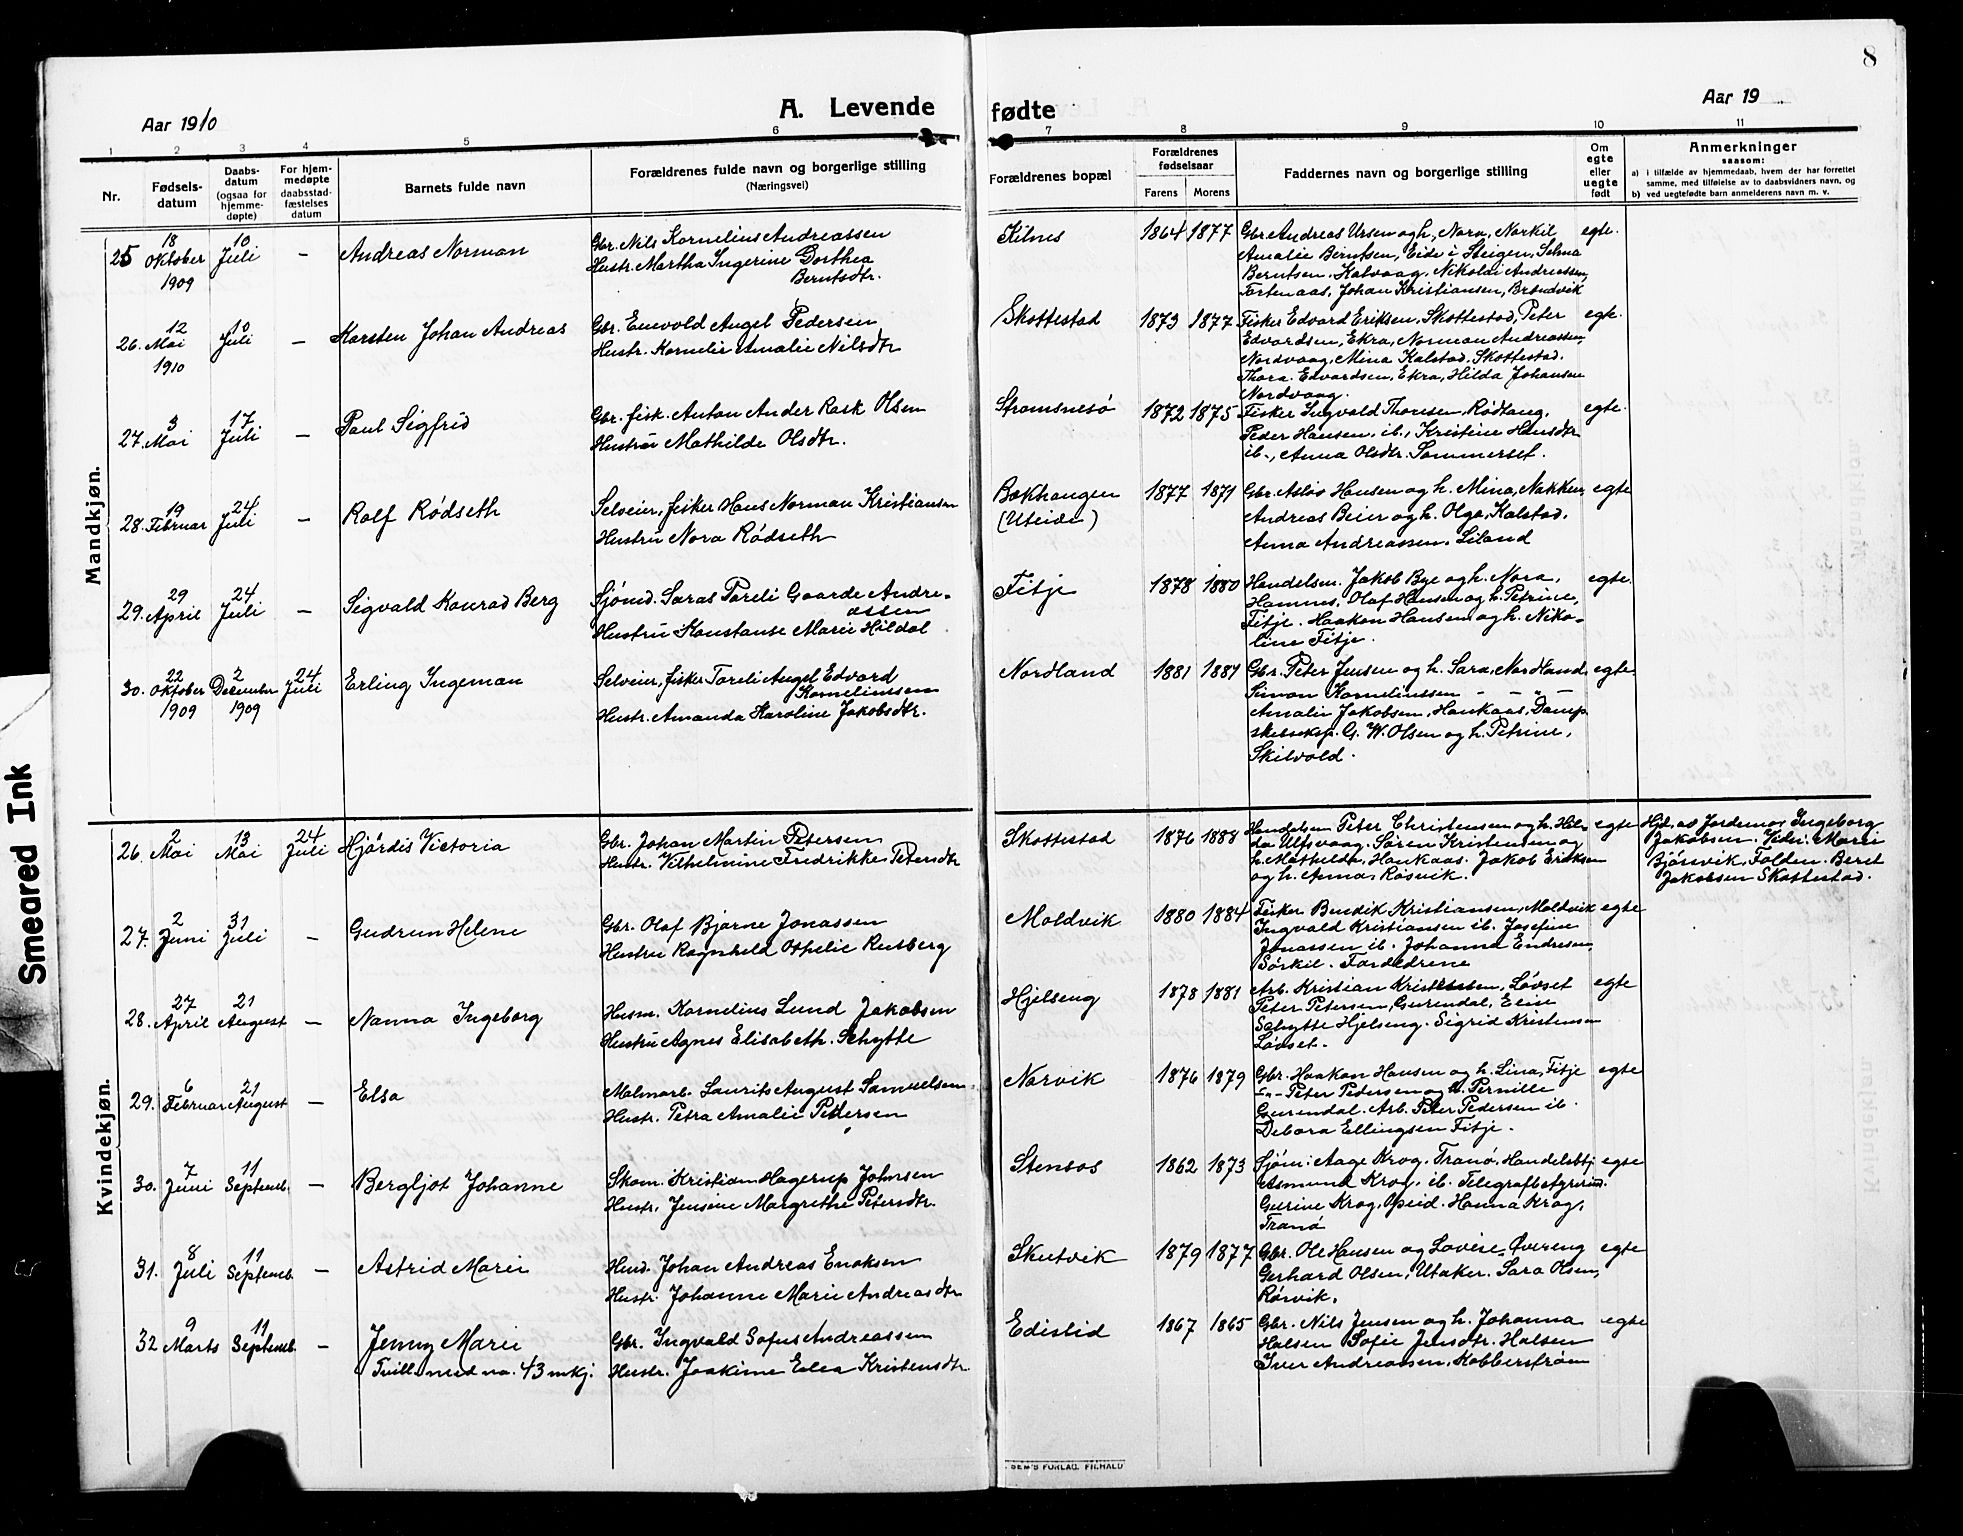 8
Aar 1910
A. Levende fødte
Aar 19
1 2 3 4 5 6 7 8 9 10 11
Nr.
Fødsels-
datum
Daabs-
datum
(ogsaa for
hjemme-
døpte)
For hjem-
medøpte
daabsstad-
fæstelses
datum
Barnets fulde navn
Forældrenes fulde navn og borgerlige stilling
(Næringsvei)
Forældrenes bopæl
Forældrenes
fødselsaar
Farens Morens
Faddernes navn og borgerlige stilling
Om
egte
eller
uegte
født
Anmerkninger
saasom:
a) i tilfælde av hjemmedaab, hvem der har forrettet
samme, med tilføielse av to daabsvidners navn, og
b) ved uegtefødte barn anmelderens navn m. v.
Mandkjøn.
25 18 Oktober 1909 10 Juli – Andreas Norman
Gbr. Nils Kornelius Andreassen
Hustr. Martha Ingerine Dorthea
Berntsdtr.
Kilnes 1864 1877
Gbr. Andreas Ursen og h. Nora, Norkil
Amalie Berntsen, Eide i Steigen, Selma
Berntsen, Kalvaag, Nikolai Andreassen
Tortenaas, Johan Kristiansen, Brændvik
egte.
26. 12 Mai 1910 10 Juli – Karsten Johan Andreas
Gbr. Enevold Angel Pedersen
Hustr. Kornelie Amalie Nilsdtr
Skottestad 1873 1877
Fisker Edvard Eriksen, Skottestad, Peter
Edvardsen, Ekra, Norman Andreassen
Nordvaag, Mina Kalstad, Skottestad.
Thora Edvardsen, Ekra, Hilda Johansen
Nordvaag.
egte.
27. 3 Mai 17 Juli – Paul Sigfrid
Gbr. fisk. Anton Ander Rask Olsen
Hustru Mathilde Olsdtr.
Stromsnesø 1872 1875
Fisker Ingvald Thonsen, Rødtang,
Peder Hansen, ib., Kristine Hansdtr
ib., Anna Olsdtr. Sommerset.
egte.
28. 19 Februar 24 Juli – Rolf Rødseth
Selveier, fisker Hans Norman Kristiansen
Hustru Nora Rødseth
Bækhaugen
(Uteide)
1877 1871
Gbr. Asløv Hansen og h. Mina, Nakken
Andreas Beier og h. Olga, Kalstad,
Anna Andreassen, Liland
egte
29. 29 April 24 Juli – Sigvald Konrad Berg
Sjömd. Saras Toreli Gaarde Andre-
assen
Hustru Konstanse Marie Hildal
Fitje 1878 1880
Handelsm. Jakob Bye og h. Nora,
Hamnes, Olaf Hansen og h. Petrine,
Fitje. Haakon Hansen og h. Niko-
line Fitje.
egte.
30. 22 Oktober 1909 2 Desember 1909 24 Juli Erling Ingeman
Selveier, fisker Toreli Angel Edvard
Korneliussen
Hustr. Amanda Karoline Jakobsdtr.
Nordland 1881 1887
Gbr. Peter Jensen og h. Sara, Nordland
Simon Korneliussen – – " –
Amalie Jakobsen, Haukaas, Damp
skibseksp. G. W. Olsen og h. Petrine,
Skilvold.
egte
Kvindekjøn.
26. 2 Mai 13 Mai 24 Juli Hjördis Victoria
Gbr. Johan Martin Petersen
Hustr. Vilhelmine Fredrikke Petersdtr
Skottestad 1876 1888
Handelsm Peter Christensen og h. Hil-
da Ulfsvaag. Sören Kristensen og
h. Mathilde, Haukaas. Jakob Eriksen
og h. Anna, Røsvik.
egte
Hjd. av Jordemor Ingeborg
Jakobsen. Vidn: Marie
Bjørsvik, Folden. Beret
Jakobsen Skottestad.
27. 2 Juni 31 Juli – Gudrun Helene
Gbr. Olaf Bjarne Jonassen
Hustru Ragnhild Othelie Rusberg
Moldvik 1880 1884
Fisker Bendik Kristiansen, Moldvik
Ingvald Kristiansen ib. Josefine
Jonassen ib. Johanna Endresen,
Sørkil. Forældrene
egte
28. 27 April 21 August – Nanna Ingeborg
Husm. Kornelius Lund Jakobsen
Hustru Agnes Elisabeth Schytte
Hjelseng 1878 1881
Arb. Kristian Kristensen, Løvset
Peter Petersen, Gurendal, Elise
Schytte Hjelseng. Sigrid Kristensen
Løvset.
egte
29. 6 Februar 21 August – Elsa
Malmarb. Laurits August Samuelsen
Hustr. Petra Amalie Petersen
Narvik 1876 1879
Gbr. Haakon Hansen og h. Lina, Fitje
–"– Peter Pedersen og h. Pernille
Gurendal. Arb. Peter Pedersen ib.
Debora Ellingsen Fitje.
egte
30. 7 Juni 11 Septemb. – Bergljot Johanne
Skom. Kristian Hagerup Johnsen
Hustr. Jensine Margrethe Petersdtr.
Stensos 1862 1873
Sjöm: Aage Krog, Tranö, Handelsbtj
Asmund Krog, ib. Telegrafbstyrerin.
Gurine Krog, Opeid. Hanna Krog,
Tranö
egte
31. 8 Juli 11 Septemb. – Astrid Marie
Hmd. Johan Andreas Enoksen
Hustr. Johanne Marie Andreasdtr
Skutvik 1879 1877
Gbr. Ole Hansen og Lovise Övereng
Gerhard Olsen, Utaker. Sara Olsen,
Rørvik.
egte
32 9 Marts 11 Septemb. – Jenny Marie
Tvill. med no. 43 mkj.
Gbr. Ingvald Sofus Andreassen
Hustr. Joakime Elea Kristensdtr
Edislid 1867 1865
Gbr. Nils Jensen og h. Johanna
Halsen Sofie Jensdtr. Halsen
Iver Andreassen, Kobberstrøm
egte
SEM'S FORLAG, FR.HALD
Smeared Ink